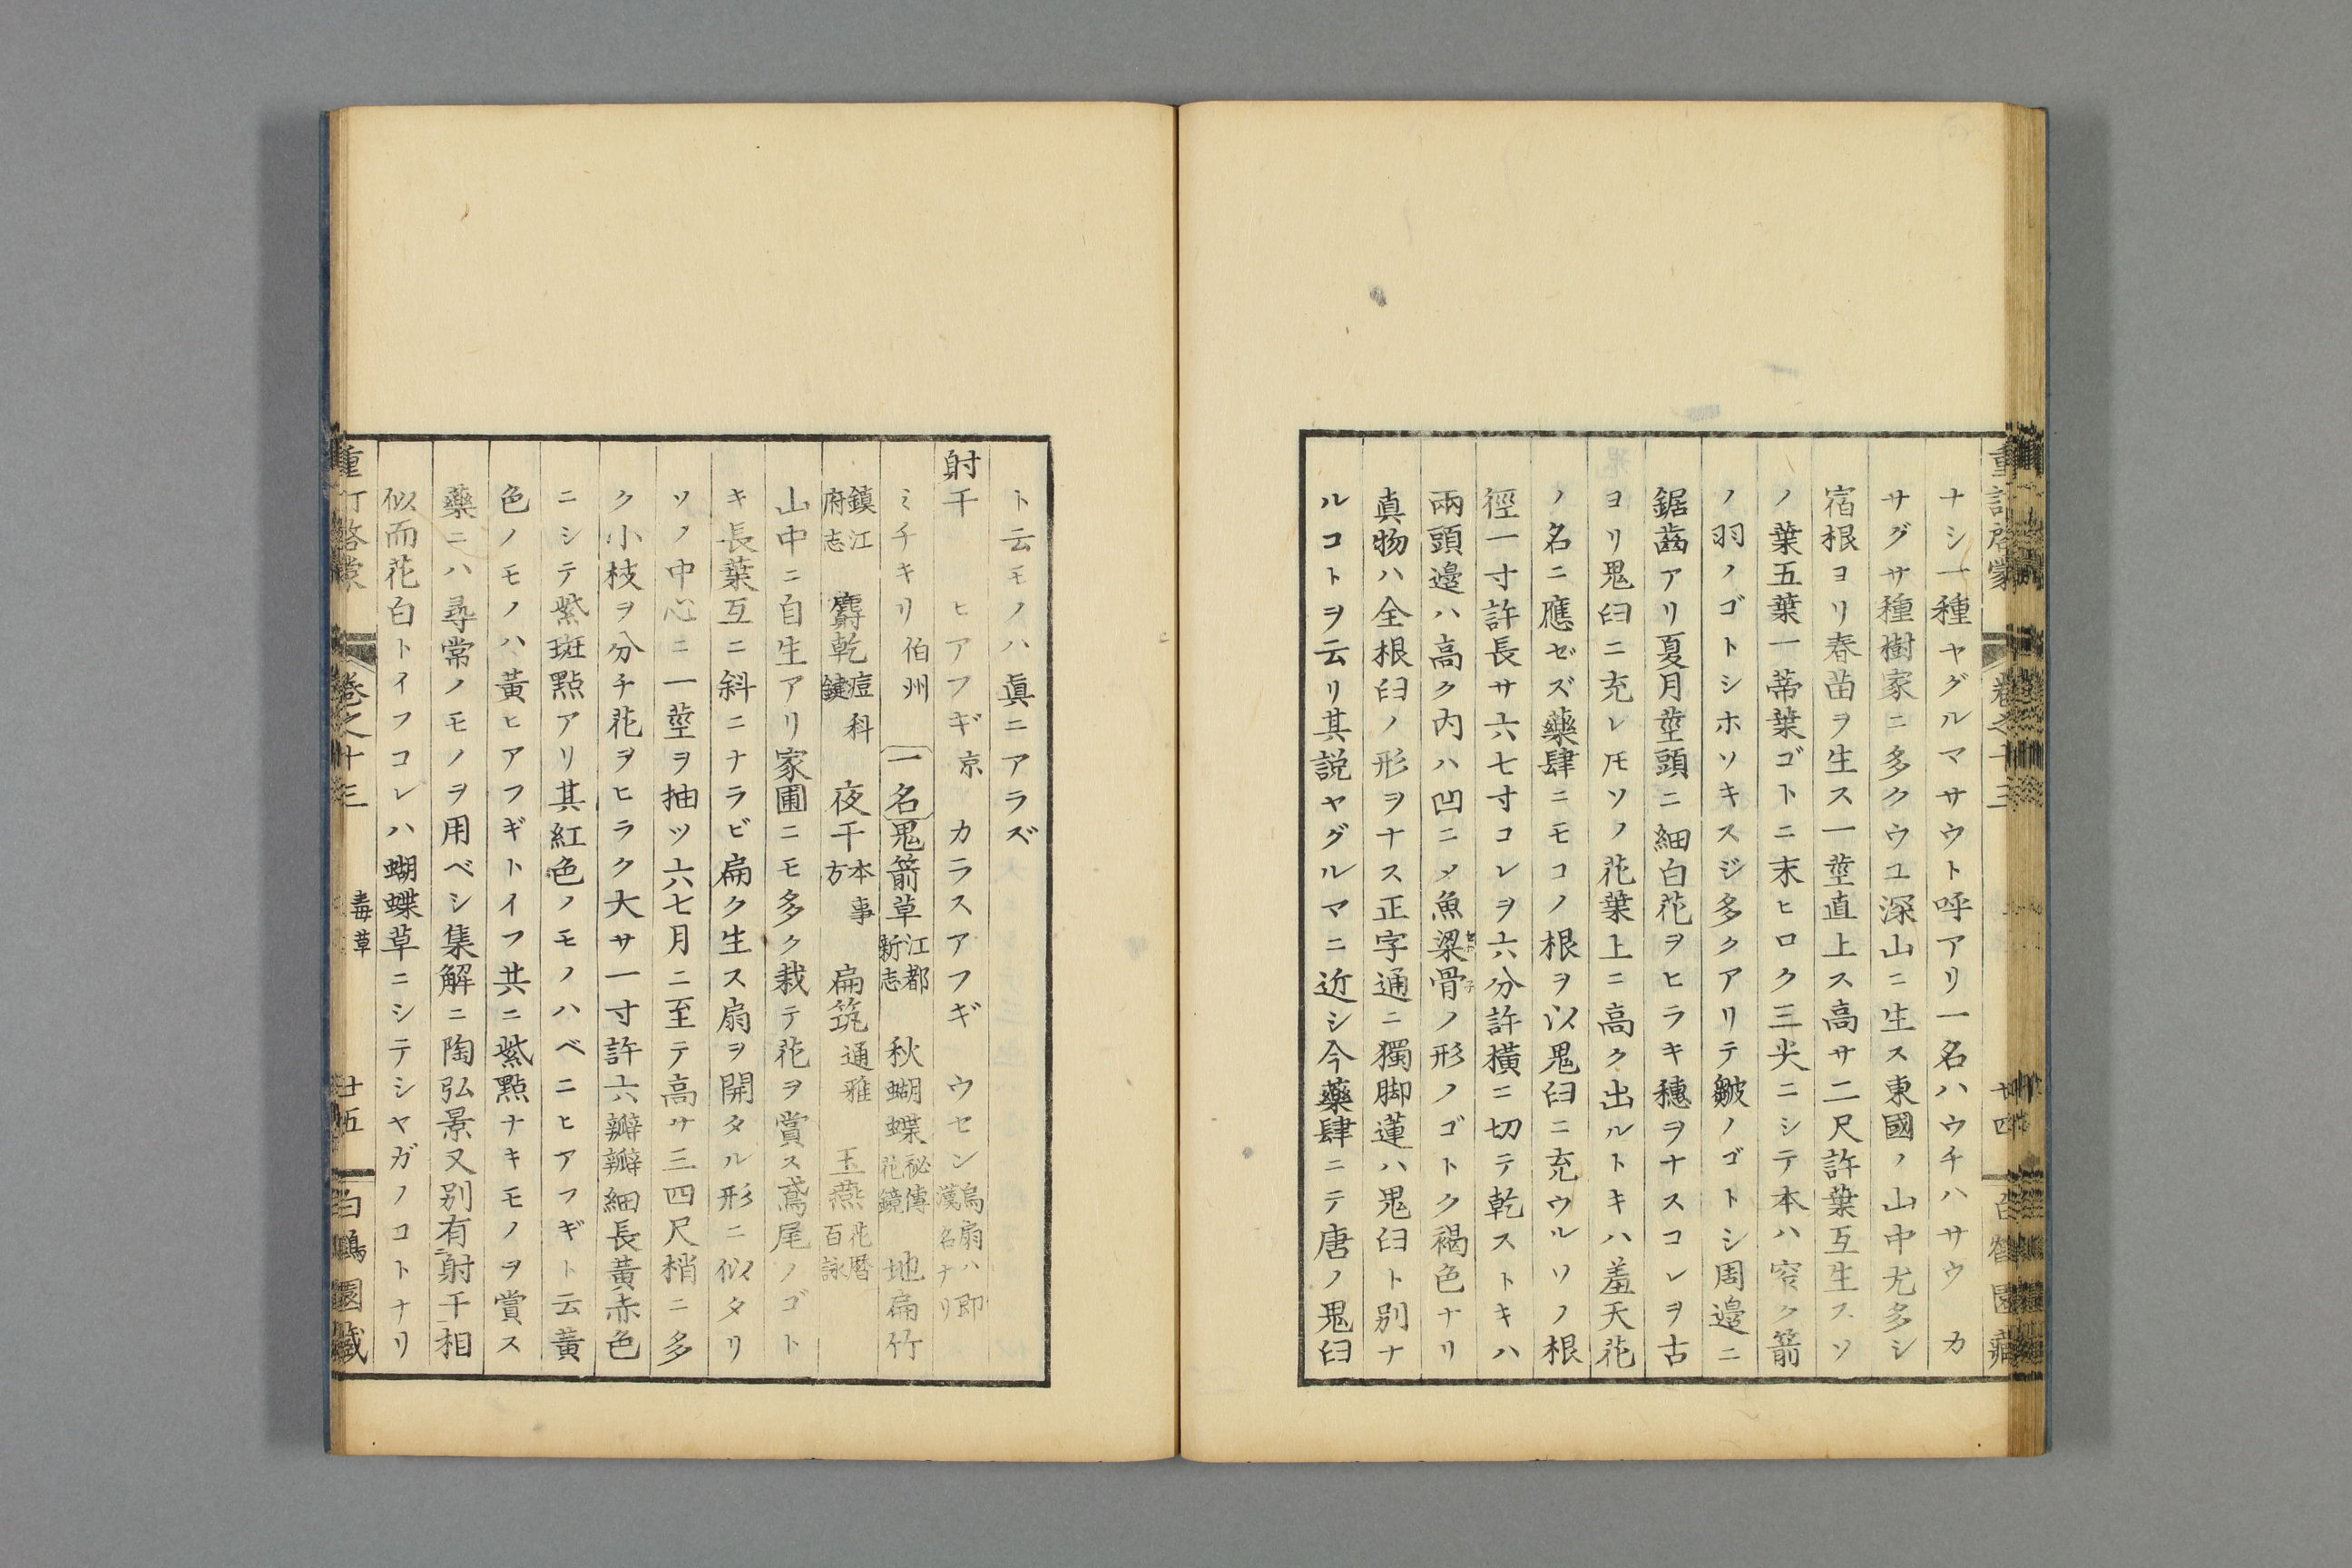 重訂啓蒙 卷之十三 十四
ナシ一種ヤグルマサウト呼アリ一名ハウチハサウ カ
サグサ種樹家ニ多クウユ深山ニ生ス東國ノ山中尤多シ
宿根ヨリ春苗ヲ生ス一莖直上ス高サ二尺許葉互生スソ
ノ葉五葉一蒂葉ゴトニ末ヒロク三尖ニシテ本ハ窄ク箭
ノ羽ノゴトシホソキスジ多クアリテ皺ノゴトシ周邊ニ
鋸齒アリ夏月莖頭ニ細白花ヲヒラキ穗ヲナスコレヲ古
ヨリ鬼臼ニ充レ𪜈ソノ花葉上ニ高ク出ルトキハ羞天花
ノ名ニ應ゼズ藥肆ニモコノ根ヲ以鬼臼ニ充ウルソノ根
徑一寸許長サ六七寸コレヲ六分許橫ニ切テ乾ストキハ
兩頭邊ハ高ク内ハ凹ニメ魚梁骨ノ形ノゴトク褐色ナリ
真物ハ全根臼ノ形ヲナス正字通ニ獨脚蓮ハ鬼臼ト別ナ
ルコトヲ云リ其説ヤグルマニ近シ今藥肆ニテ唐ノ鬼臼
ト云モノハ眞ニアラズ
射干 ヒアフギ京 カラスアフギ ウセン烏扇ハ即漢名ナリ
ミチキリ伯州 一名鬼箭草江都新志 秋蝴蝶祕傳花鏡 地扁竹
鎮江府志 麝乾痘科鍵 夜干本事方 扁筑通雅 玉燕花暦百詠
山中ニ自生アリ家圃ニモ多ク栽テ花ヲ賞ス鳶尾ノゴト
キ長葉互ニ斜ニナラビ扁ク生ス扇ヲ開タル形ニ似タリ
ソノ中心ニ一莖ヲ抽ツ六七月ニ至テ高サ三四尺梢ニ多
ク小枝ヲ分チ花ヲヒラク大サ一寸許六瓣瓣細長黃赤色
ニシテ紫斑點アリ其紅色ノモノハベニヒアフギト云黃
色ノモノハ黃ヒアフギトイフ共ニ紫點ナキモノヲ賞ス
藥ニハ尋常ノモノヲ用ベシ集解ニ陶弘景又別有射干相
似而花白トイフコレハ蝴蝶草ニシテシヤガノコトナリ
重訂啓蒙 卷之十三 毒草 廿五